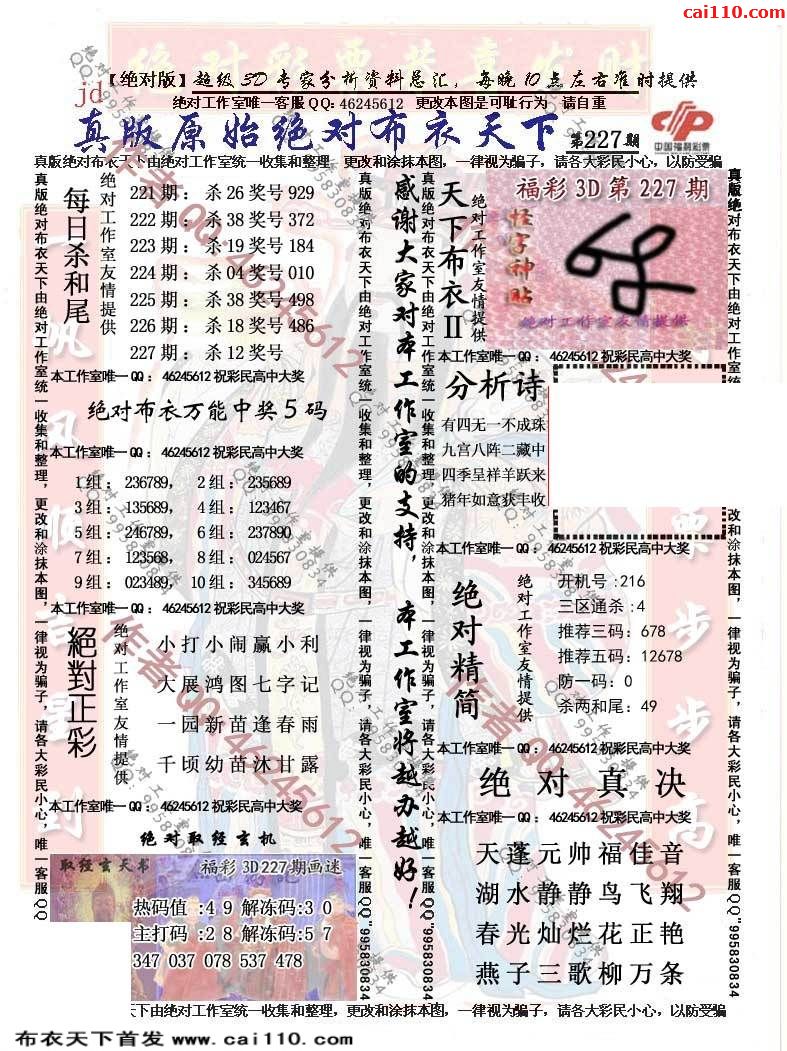 cai110.com
【绝对版】超级3D专家分析资料总汇，每晚10点左右准时提供
jd
绝对工作室唯一客服QQ：46245612 更改本图是可耻行为 请自重
真版原始绝对布衣天下 第227期
中国福利彩票
真版绝对布衣天下由绝对工作室统一收集和整理，更改和涂抹本图，一律视为骗子，请各大彩民小心，以防受骗
每日杀和尾
绝对工作室友情提供
221期：杀26奖号929
222期：杀38奖号372
223期：杀19奖号184
224期：杀04奖号010
225期：杀38奖号498
226期：杀18奖号486
227期：杀12奖号
本工作室唯一QQ：46245612祝彩民高中大奖
绝对布衣万能中奖5码
本工作室唯一QQ：46245612祝彩民高中大奖
1组：236789， 2组：235689
3组：135689， 4组：123467
5组：246789， 6组：237890
7组：123568， 8组：024567
9组：023489， 10组：345689
本工作室唯一QQ：46245612祝彩民高中大奖
絕對正彩
绝对工作室友情提供
小打小闹赢小利
大展鸿图七字记
一园新苗逢春雨
千顷幼苗沐甘露
本工作室唯一QQ：46245612祝彩民高中大奖
绝对取经玄机
取经玄天书 福彩3D227期画迷
热码值:49解冻码:30
主打码:28解冻码:57
347 037 078 537 478
感谢大家对本工作室的支持，本工作室将越办越好！
天下布衣II
绝对工作室友情提供
福彩3D第227期
怪字神贴
绝对工作室友情提供
本工作室唯一QQ：46245612祝彩民高中大奖
分析诗
有四无一不成珠
九宫八阵二藏中
四季呈祥羊跃来
猪年如意获丰收
本工作室唯一QQ：46245612祝彩民高中大奖
绝对精简
绝对工作室友情提供
开机号:216
三区通杀:4
推荐三码:678
推荐五码:12678
防一码:0
杀两和尾:49
本工作室唯一QQ：46245612祝彩民高中大奖
绝对真决
本工作室唯一QQ：46245612祝彩民高中大奖
天蓬元帅福佳音
湖水静静鸟飞翔
春光灿烂花正艳
燕子三歌柳万条
真版绝对布衣天下由绝对工作室统一收集和整理，更改和涂抹本图，一律视为骗子，请各大彩民小心，唯一客服QQ
真版绝对布衣天下由绝对工作室统一收集和整理，更改和涂抹本图，一律视为骗子，请各大彩民小心，唯一客服QQ"995830834
真版绝对布衣天下由绝对工作室统一收集和整理，更改和涂抹本图，一律视为骗子，请各大彩民小心，唯一客服QQ"995830834
真版绝对布衣天下由绝对工作室统
改和涂抹本图，一律视为骗子，请各大彩民小心，唯一客服QQ"995830834
天下由绝对工作室统一收集和整理，更改和涂抹本图，一律视为骗子，请各大彩民小心，以防受骗
布衣天下首发 www.cai110.com
作者QQ 46245612